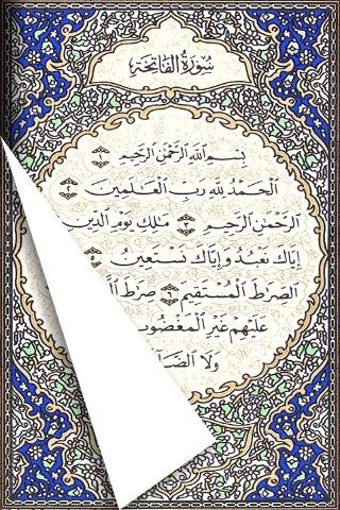 سُورَةُ الفَاتِحَةِ
بِسْمِ اللَّهِ الرَّحْمَٰنِ الرَّحِيمِ ١
الْحَمْدُ لِلَّهِ رَبِّ الْعَالَمِينَ ٢
الرَّحْمَٰنِ الرَّحِيمِ ٣ مَالِكِ يَوْمِ الدِّينِ
إِيَّاكَ نَعْبُدُ وَإِيَّاكَ نَسْتَعِينُ ٥
الصِّرَاطَ الْمُسْتَقِيمَ ٦ صِرَاطَ
عَلَيْهِمْ غَيْرِ الْمَغْضُوبِ
وَلَا